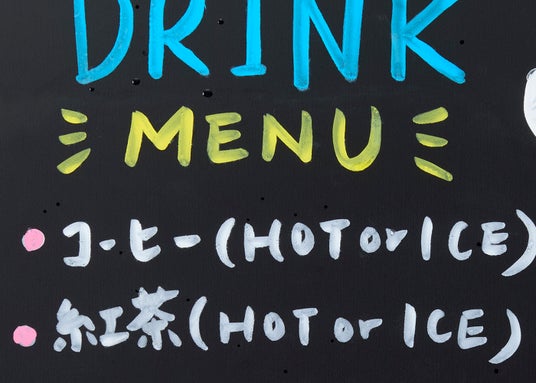 DRINK
MENU
コーヒー(HOT or ICE)
紅茶(HOT or ICE)